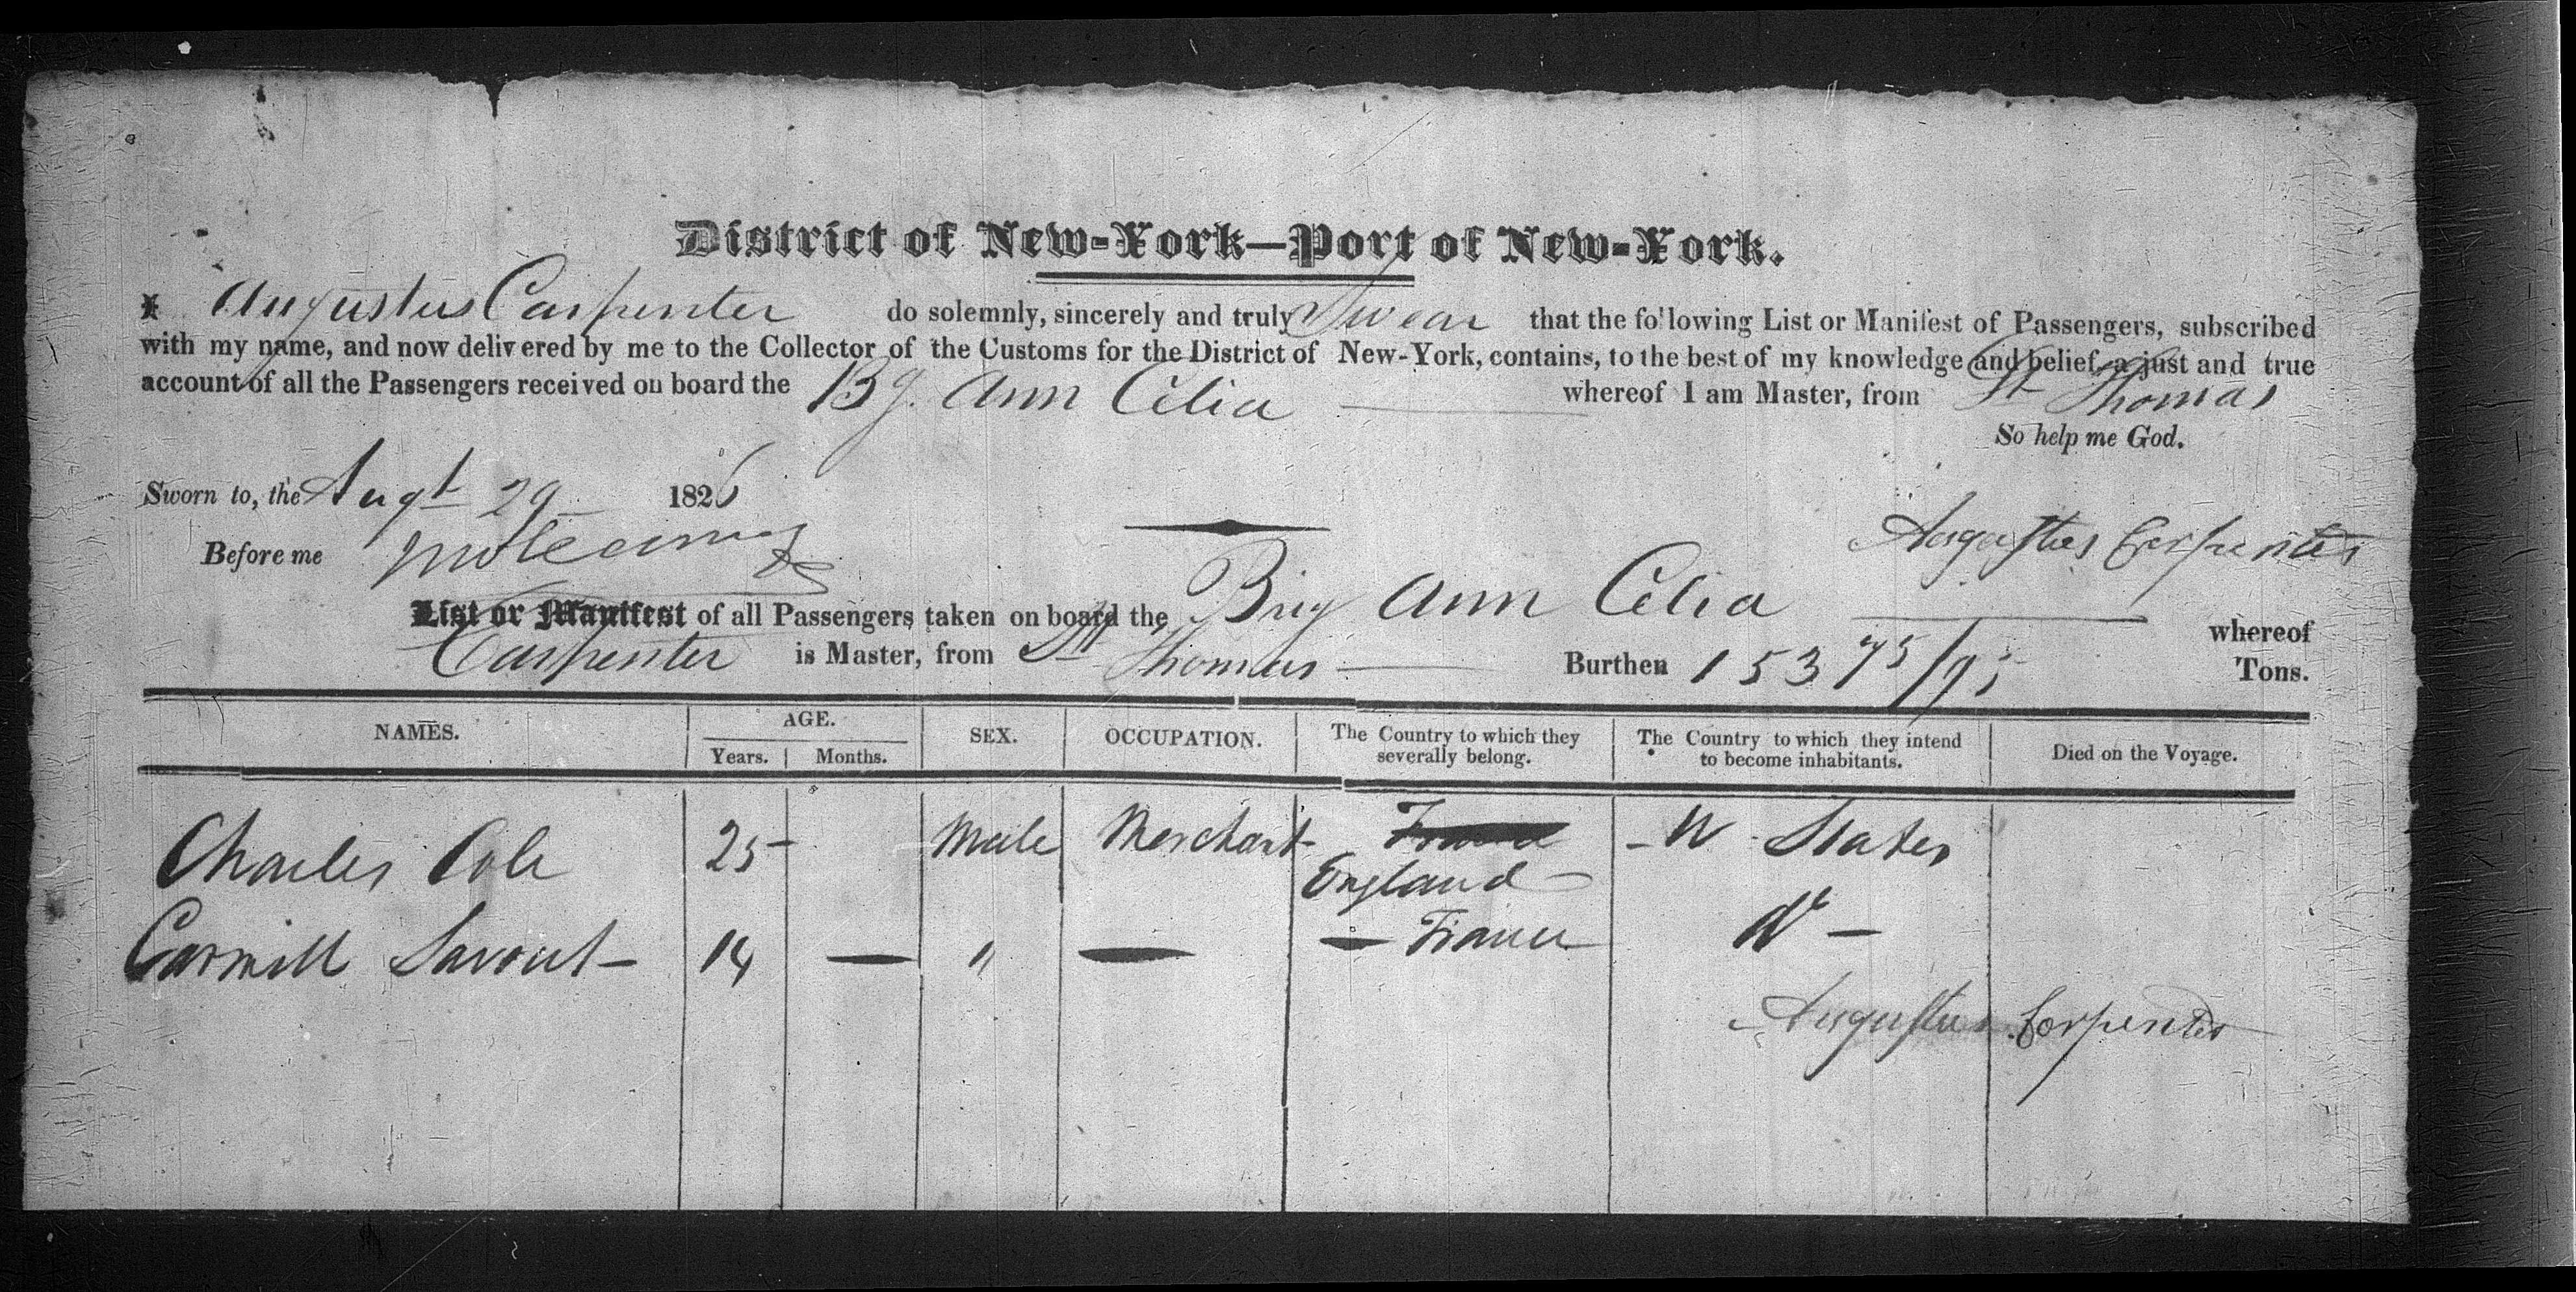 District of New-York—Port of New-York.
I Augustus Carpenter do solemnly, sincerely and truly Swear that the following List or Manifest of Passengers, subscribed
with my name, and now delivered by me to the Collector of the Customs for the District of New-York, contains, to the best of my knowledge and belief, a just and true
account of all the Passengers received on board the Bg. Ann Celia whereof I am Master, from St Thomas
So help me God.
Sworn to, the Augt 29 1826
Before me
Augustus Carpenter
List or Manifest of all Passengers taken on board the Brig Ann Celia whereof
Carpenter is Master, from St Thomas Burthen 153 75/95 Tons.
NAMES. AGE. SEX. OCCUPATION. The Country to which they severally belong. The Country to which they intend to become inhabitants. Died on the Voyage.
Years. Months.
Charles Cole 25 - Male Merchant - England - States
Carmill - 14 — " — — France do —
Augustus Carpenter